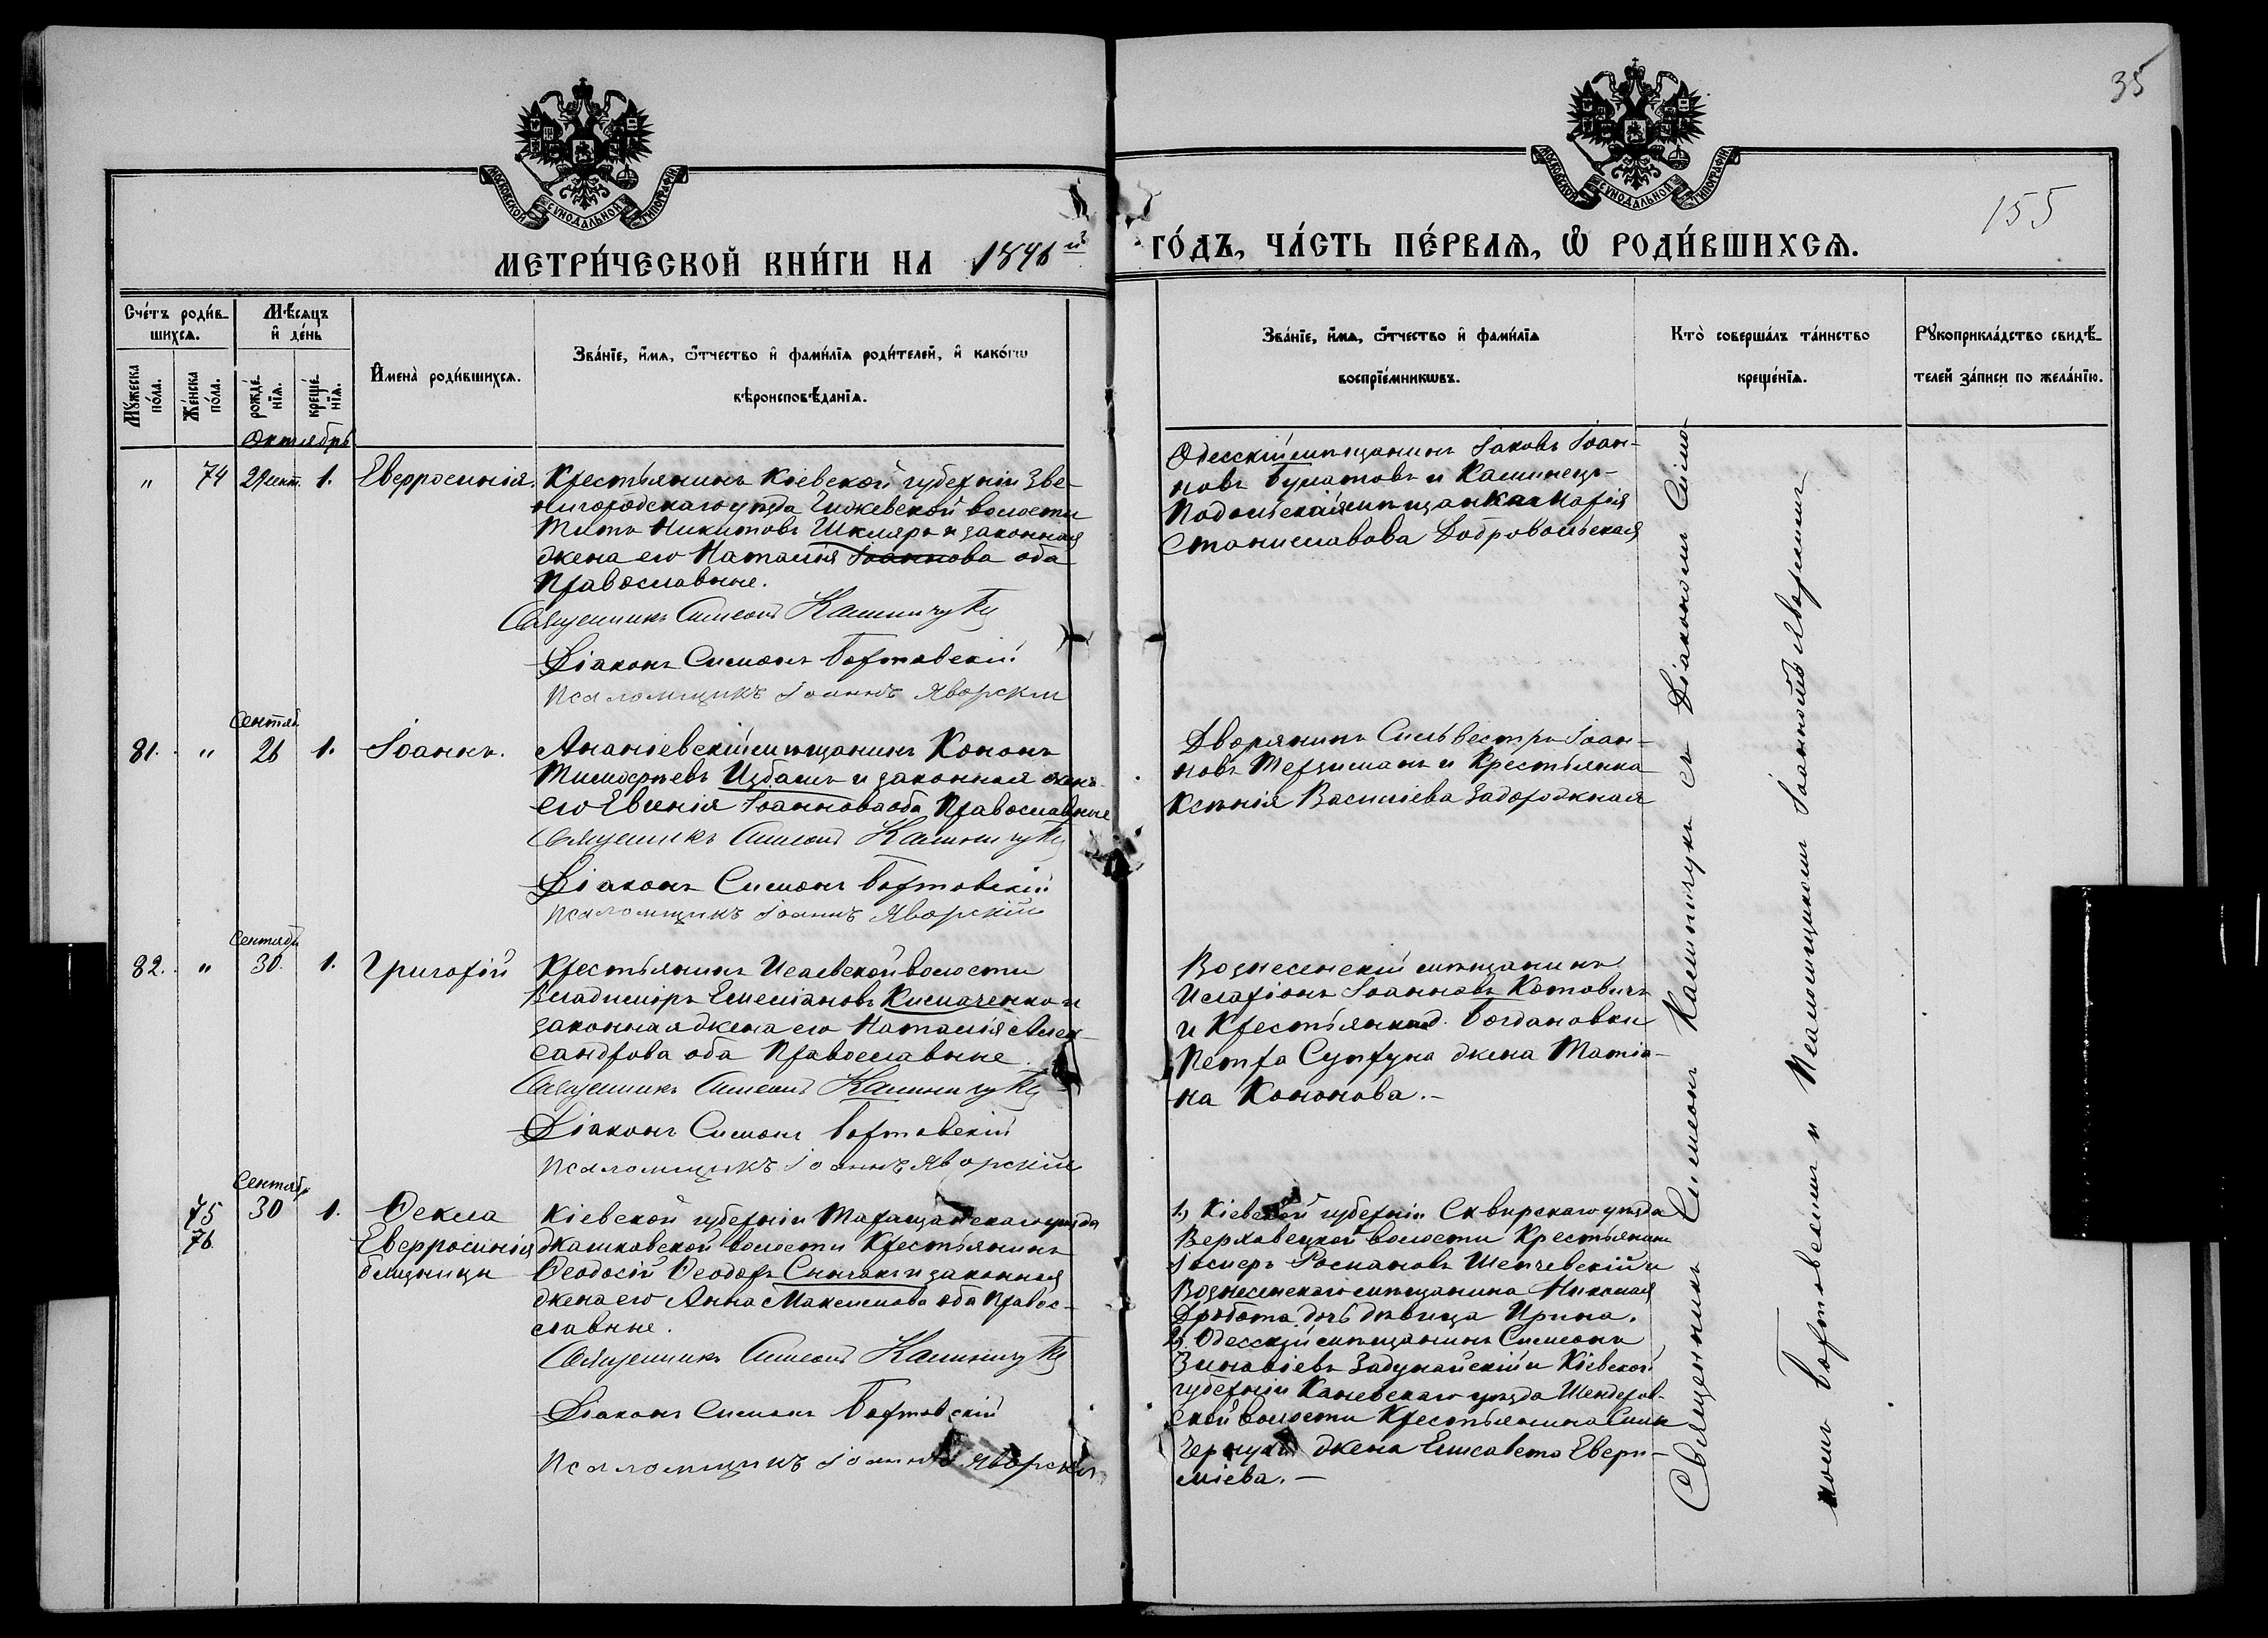 35
155
МОСКОВСКОЙ СУНОДАЛЬНОЙ ТИПОГРАФІИ.
МОСКОВСКОЙ СУНОДАЛЬНОЙ ТИПОГРАФІИ.
МЕТРИ́ЧЕСКОЙ КНИ́ГИ НА 1896й
ГО́ДЪ, ЧА́СТЬ ПЕ́РВАѦ, Ѽ РОДИ́ВШИХСѦ.
Сче́тъ роди́в-
шихсѧ.
Мѣ́сѧцъ
и҆ де́нь
Му́жеска
по́ла.
Же́нска
по́ла.
рожде́-
нїѧ.
креще́-
нїѧ.
И҆мена̀ роди́вшихсѧ.
Зва́нїе, и҆́мѧ, ѻ҆́тчество и҆ фами́лїѧ роди́телей, и҆ како́гѡ
вѣроисповѣ́данїѧ.
Зва́нїе, и҆́мѧ, ѻ҆́тчество и҆ фами́лїѧ
воспрїе́мникѡвъ.
Кто̀ соверша́лъ та́инство
креще́нїѧ.
Рꙋкоприкла́дство свидѣ́-
телей за́писи по жела́нїю.
Октябрь
" 74 29 сент. 1. Евфросинія.
Крестьянинъ Кіевской губерніи Зве-
нигородскаго уѣзда Гижевской волости
Титъ Никитовъ Шкляръ и законная
жена его Наталія Іоаннова оба
Православные.
Священникъ Симеонъ Калинчукъ
Діаконъ Симонъ Бортовскій
Псаломщикъ Іоаннъ Яворскій
Одесскій мѣщанинъ Іаковъ Іоан-
новъ Булатовъ и Каменецъ-
Подольская мѣщанка Марія
Станиславова Добровольская
Сентяб.
81. " 26 1. Іоаннъ.
Ананьевскій мѣщанинъ Кононъ
Тимофѣевъ Избашъ и законная жена
его Евгенія Іоаннова оба Православные
Священникъ Симеонъ Калинчукъ
Діаконъ Симонъ Бортовскій
Псаломщикъ Іоаннъ Яворскій
Дворянинъ Сильвестръ Іоан-
новъ Терциманъ и Крестьянка
Ксенія Василіева Задорожная
Сентябр
82. " 30. 1. Григорій
Крестьянинъ Исаевской волости
Владиміръ Емеліановъ Кислаченко и
законная жена его Наталія Алек-
сандрова оба Православные.
Священникъ Симеонъ Калинчукъ
Діаконъ Симонъ Бортовскій
Псаломщикъ Іоаннъ Яворскій
Вознесенскій мѣщанинъ
Иларіонъ Іоанновъ Котовичъ
и Крестьянина д. Богдановки
Петра Супруна жена Татіа-
на Кононова.-
Сентябр
75 30 1. Ѳекла
76. Евфросинія
близницы
Кіевской губерніи Таращанскаго уѣзда
Жашковской волости Крестьянинъ
Ѳеодосій Ѳеодор. Сынчакъ и законная
жена его Анна Максимова оба Правос-
славные.
Священникъ Симеонъ Калинчукъ
Діаконъ Симонъ Бортовскій
Псаломщикъ Іоаннъ Яворскій
1.) Кіевской губерніи Сквирскаго уѣзда
Верховецкой волости Крестьянинъ
Романовъ Шепчевскій и
Вознесенскаго мѣщанина Николая
Дробота дочь дѣвица Ирина.
2) Одесскій мѣщанинъ Симеонъ
Зиновіевъ Задунайскій и Кіевской
губерніи Каневскаго уѣзда Шендеров-
ской волости Крестьянина
жена Елисавета Евфи-
міева.-
Священникъ Симеонъ Калинчукъ съ Діакономъ Симо-
номъ Бортовскимъ и Псаломщикомъ Іоанномъ Яворскимъ